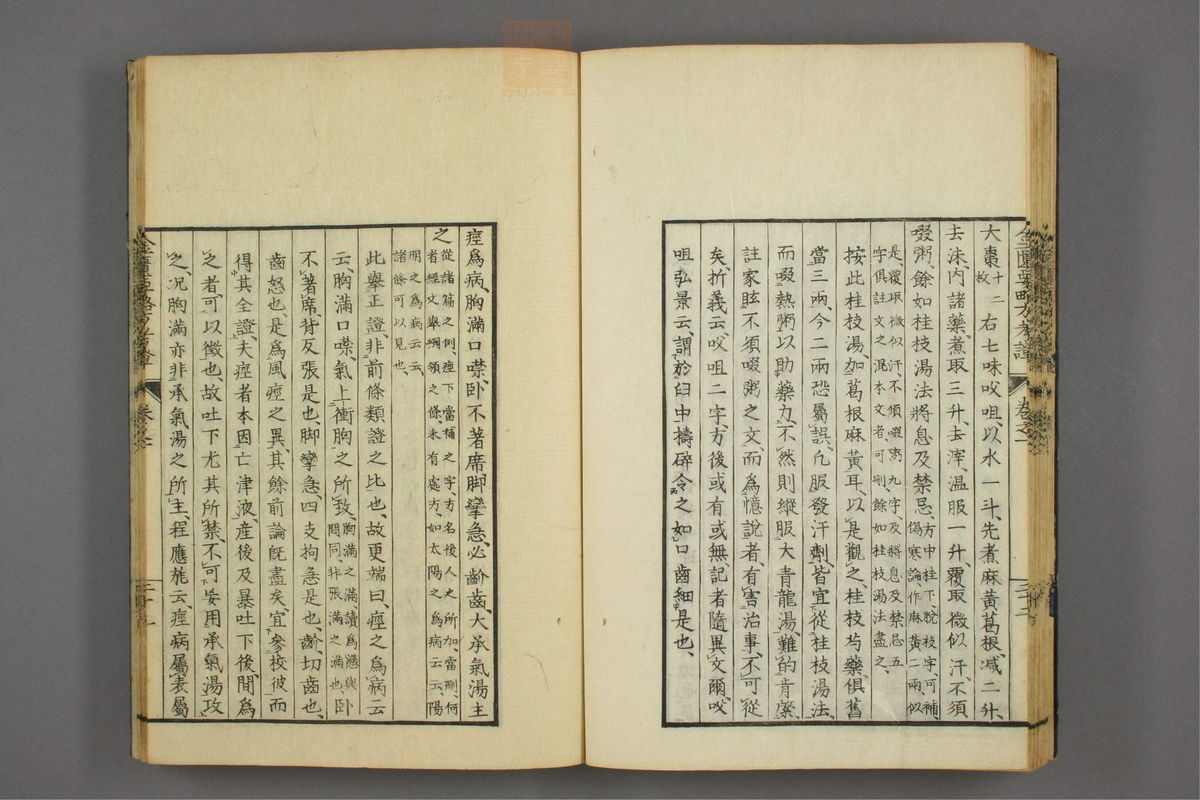 大棗十二枚右七味㕮咀、以水一斗、先煮麻黃葛根、减二升、
去沫、内諸藥、煮取三升、去滓、温服一升、覆取微似汗、不須
啜粥、餘如桂枝湯法將息及禁忌、方中桂下脫枝字、可補、傷寒論作麻黃二兩、似
是、覆取微似汗不須啜粥九字及將息及禁忌五字俱註文之混本文者、可刪、餘如桂枝湯法盡之、
按此桂枝湯加葛根麻黃耳、以是觀之、桂枝芍藥俱舊
當三兩、今二兩恐屬誤、凡服發汗劑、皆宜從桂枝湯法、
而啜熱粥以助藥力、不然則縱服大青龍湯、難的肯綮、
註家眩不須啜粥之文、而爲憶說者、有害治事、不可從
矣、折義云、㕮咀二字、方後或有或無、記者隨異文爾、㕮
咀弘景云、謂於臼中擣碎令之如口齒細是也、
痙爲病、胸滿口噤、卧不著席、脚攣急、必齘齒、大承氣湯主
之從諸篇之例、痙下當補之字、方名後人之所加、當刪、何者經文舉綱領之條、未有處方、如太陽之爲病云云、陽
明之爲病云云、諸條可以見也、
此舉正證、非前條類證之比也、故更端曰、痙之爲病云
云、胸滿口噤、氣上衝胸之所致、胸滿之滿、讀爲懣、與悶同、非張滿之滿也、卧
不著席、背反張是也、脚攣急、四支拘急是也、齘、切齒也、
齒怒也、是爲風痙之異、其餘前論旣盡矣、宜參校彼而
得其全證、夫痙者本因亡津液、産後及暴吐下後、間爲
之者、可以徵也、故吐下尤其所禁、不可妄用承氣湯攻
之、况胸滿亦非承氣湯之所主、程應旄云、痙病屬表屬